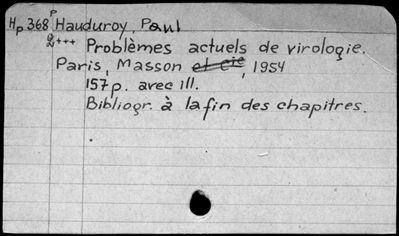 Hp 368 Hauduroy, Paul
Problèmes actuels de virologie.
Paris, Masson et Cie, 1954
157 p. avec ill.
Bibliogr. à la fin des chapitres.